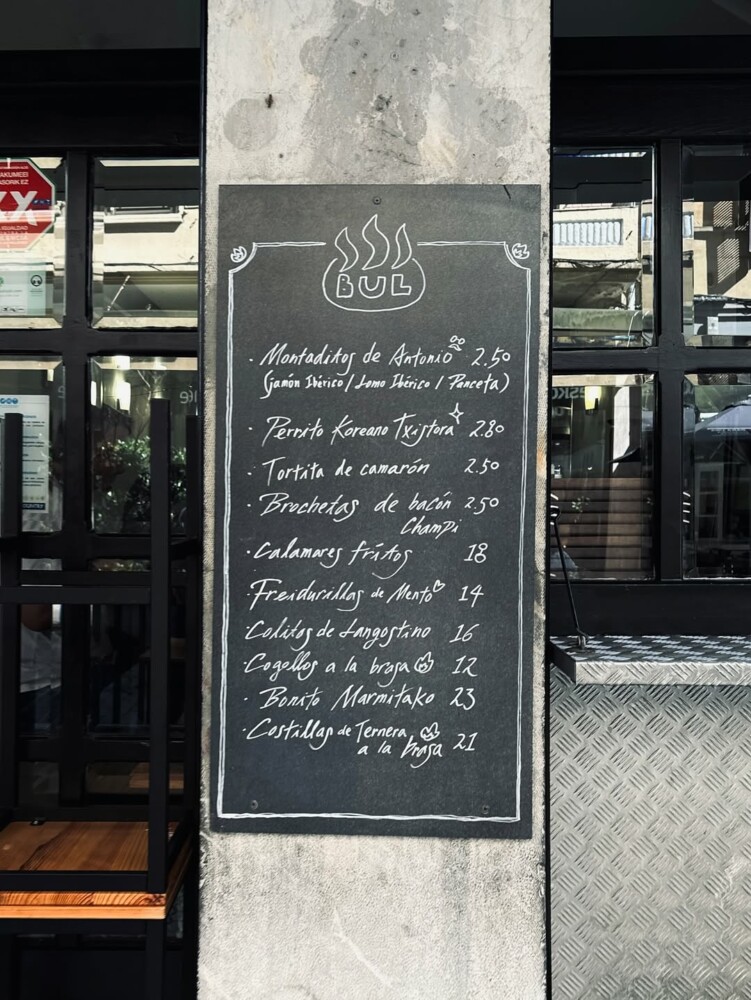 AKUMEEI
ASORIK EZ
XX
BUL
· Montaditos de Antonio 2.50
(jamón Ibérico / Lomo Ibérico / Panceta)
· Perrito Koreano Txistora 2.80
· Tortita de camarón 2.50
· Brochetas de bacón 2.50
Champi
· Calamares fritos 18
· Freidurillas de Mento 14
Colitos de Langostino 16
· Cogollos a la brasa 12
· Bonito Marmitako 23
· Costillas de Ternera 21
a la brasa